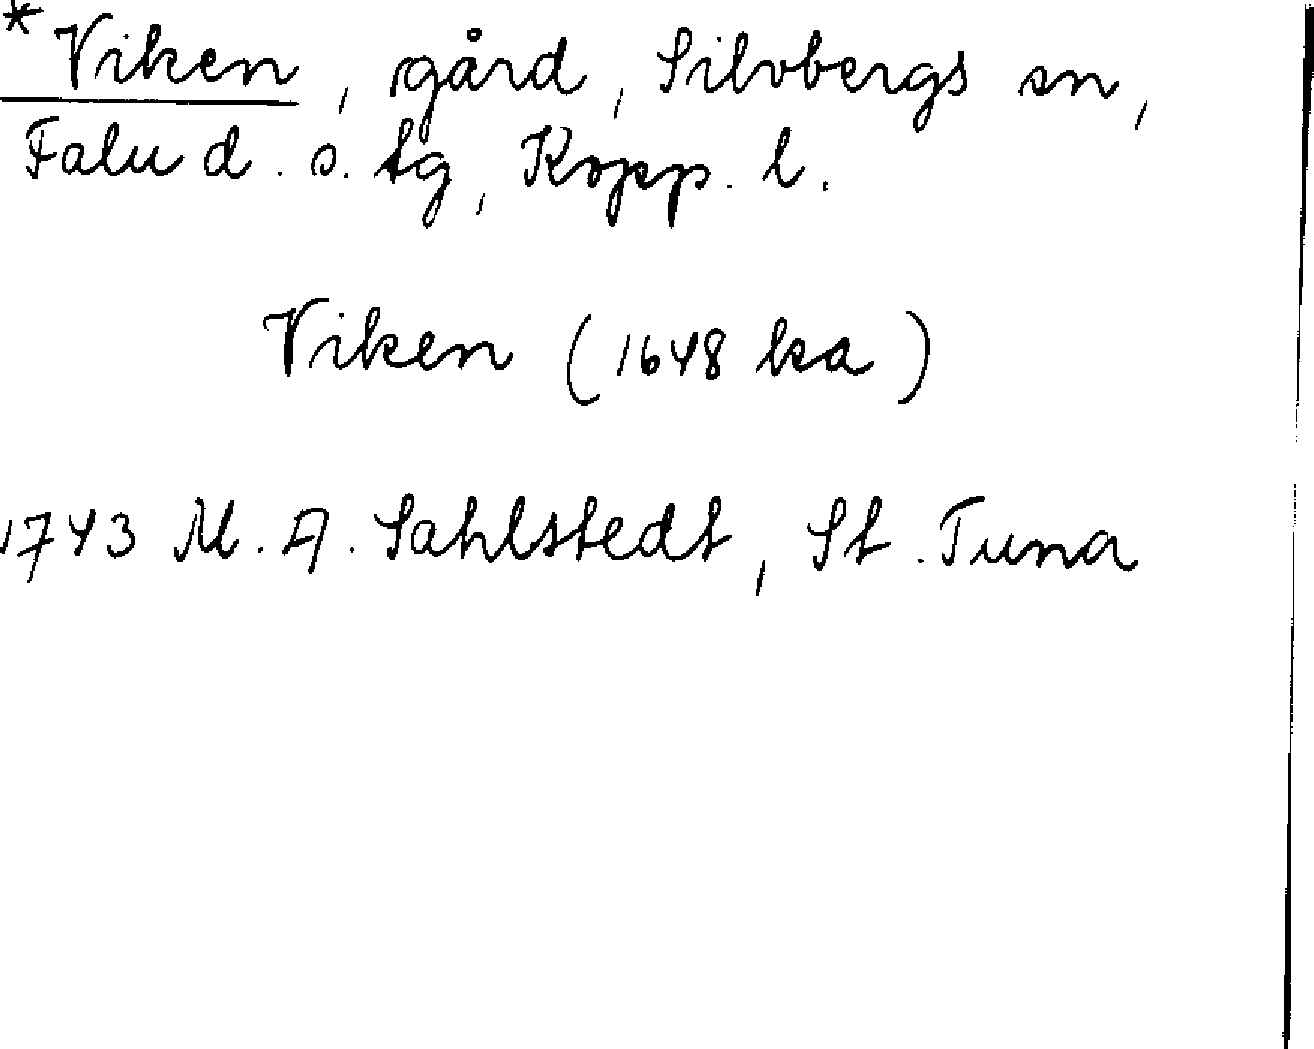 *Viken, gård, Silvbergs sn,
Falu d. s. tg, Kopp. l.
Viken (1648 ka)
1743 M. A. Sahlstedt, St. Tuna